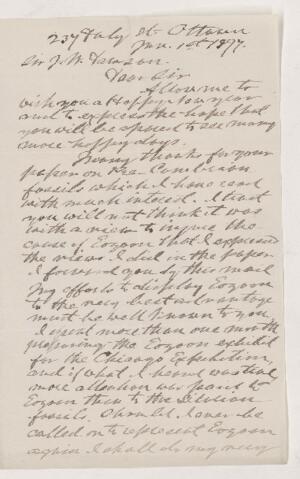 237 Daly St. Ottawa
Jan. 1st 1897.
Sir J. W. Dawson.
Dear Sir
Allow me to
wish you a Happy New year
and to express the hope that
you will be spared to see many
more happy days.
Many thanks for your
paper on Pre-Cambrian
fossils which I have read
with much interest. I trust
you will not think it was
with a view to injure the
cause of Eozoon that I expressed
the views I did in the paper
I forward you by this mail
My efforts to display Eozoon
to the very best advantage
must be well known to you,
I spent more than one month
preparing the Eozoon exhibit
for the Chicago Exhibition,
and if what I heard was true
more attention was paid to
Eozoon than to the
fossils. Should I ever be
called on to represent Eozoon
again I shall do my very